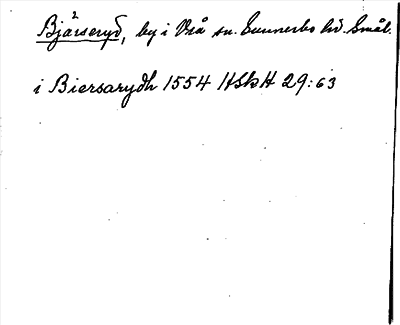 Bjärseryd, by i Vrå sn. Sunnerbo hd. Smål.
i Biersarydh 1554 HSkH 29:63